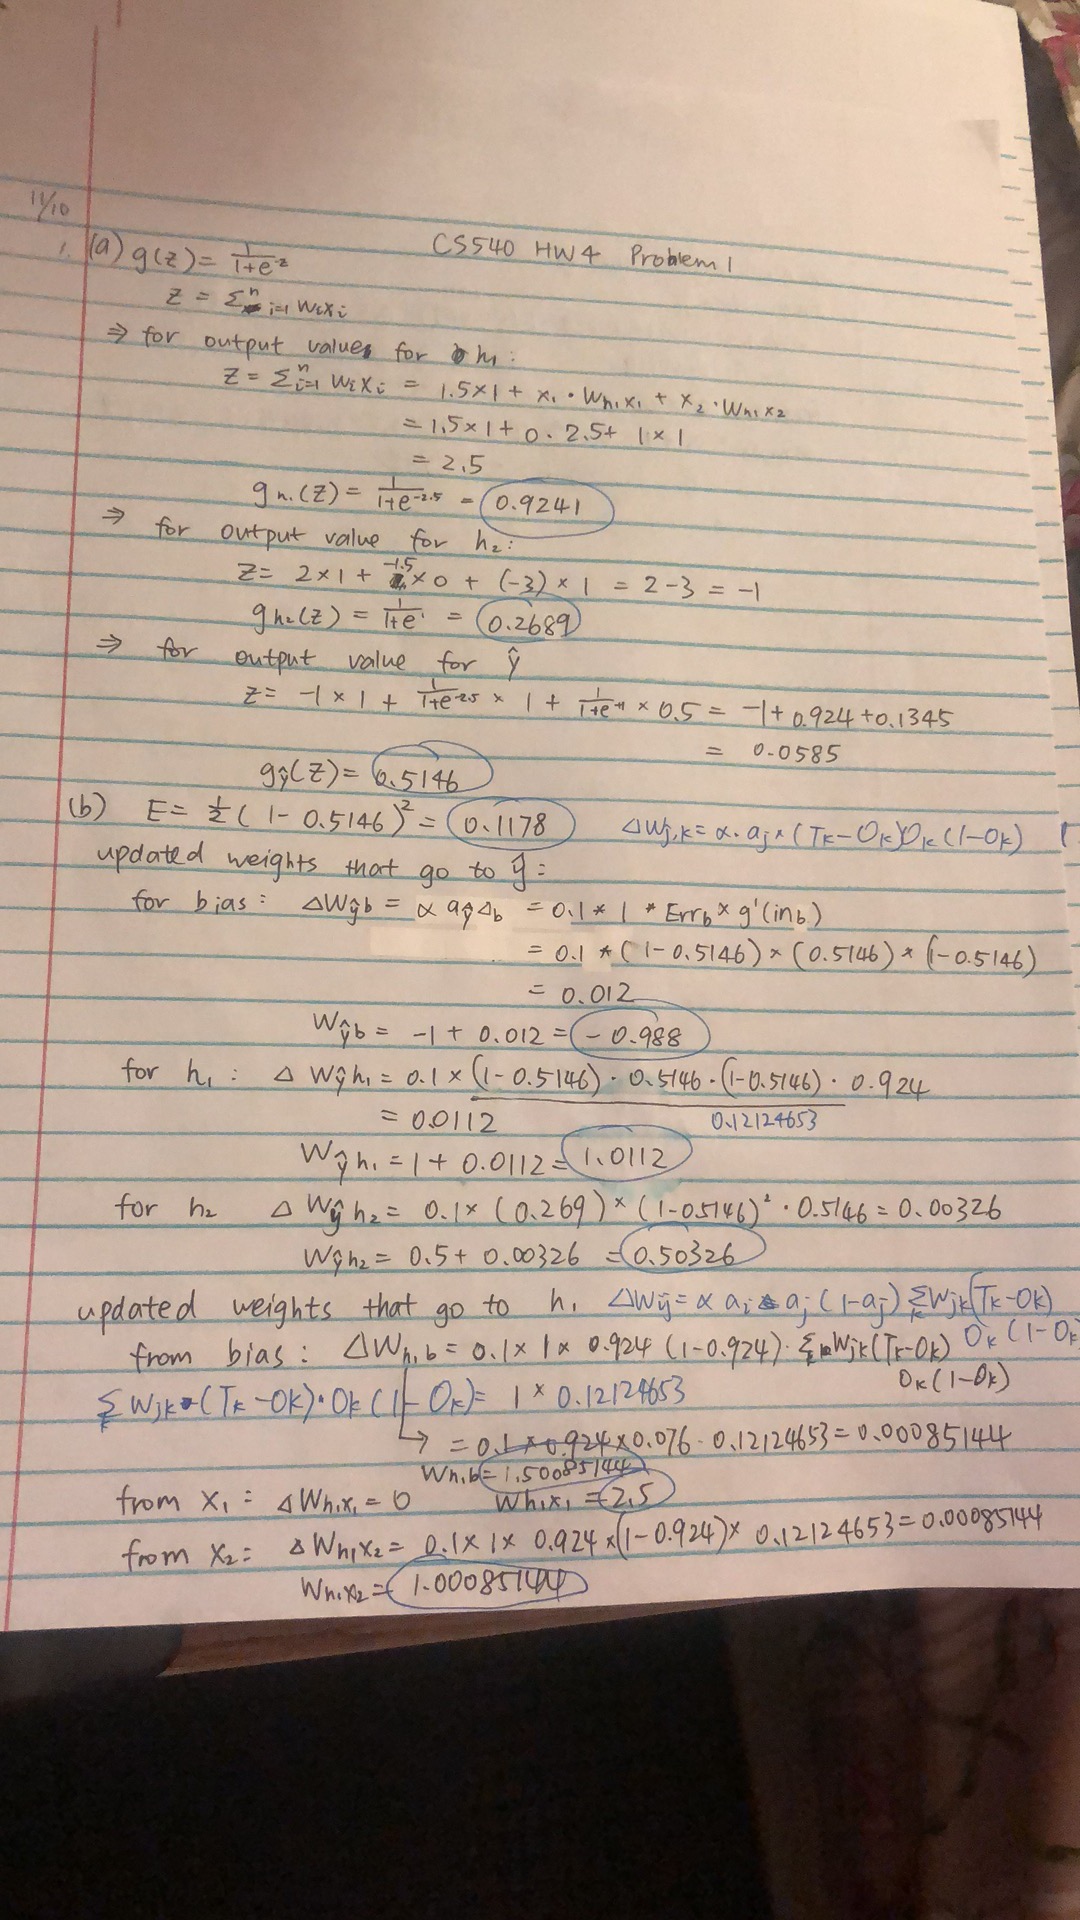 11/10
CS540 HW4 Problem 1
1. (a) g(z) = 1/(1+e^-z)
z = Σ^n i=1 wixi
⇒ for output values for h1:
z = Σ^n i=1 wixi = 1.5×1 + x1 · Wh1x1 + x2 · Wh1x2
= 1.5×1 + 0 · 2.5 + 1×1
= 2.5
gh1(z) = 1/(1+e^-2.5) = 0.9241
⇒ for output value for h2:
z = 2×1 + -1.5×0 + (-3)×1 = 2-3 = -1
gh2(z) = 1/(1+e^1) = 0.2689
⇒ for output value for ŷ
z = -1×1 + 1/(1+e^-2.5) × 1 + 1/(1+e^+1) × 0.5 = -1+0.924+0.1345
= 0.0585
gŷ(z) = 0.5146
(b) E = 1/2 (1-0.5146)^2 = 0.1178 ΔWj,k = α · aj × (Tk-Ok)Ok(1-Ok)
updated weights that go to ŷ:
for bias: ΔWŷb = α aŷ Δb = 0.1 * 1 * Errb × g'(inb)
= 0.1 * (1-0.5146) × (0.5146) * (1-0.5146)
= 0.012
Wŷb = -1 + 0.012 = -0.988
for h1: ΔWŷh1 = 0.1 × (1-0.5146) · 0.5146 · (1-0.5146) · 0.924
= 0.0112 0.12124653
Wŷh1 = 1 + 0.0112 = 1.0112
for h2 ΔWŷh2 = 0.1× (0.269) × (1-0.5146)^2 · 0.5146 = 0.00326
Wŷh2 = 0.5 + 0.00326 = 0.50326
updated weights that go to h1 ΔWij = α ai aj (1-aj) Σk Wjk(Tk-Ok) Ok(1-Ok)
from bias: ΔWh1b = 0.1 × 1 × 0.924 (1-0.924) · Σk Wjk(Tk-Ok)
Ok(1-Ok)
Σk Wjk · (Tk-Ok) · Ok(1-Ok) = 1 × 0.12124653
→ = 0.1 × 0.924 × 0.076 · 0.12124653 = 0.00085144
Wh1b = 1.50085144
from x1: ΔWh1x1 = 0 Wh1x1 = 2.5
from x2: ΔWh1x2 = 0.1 × 1 × 0.924 × (1-0.924) × 0.12124653 = 0.00085144
Wh1x2 = 1.00085144